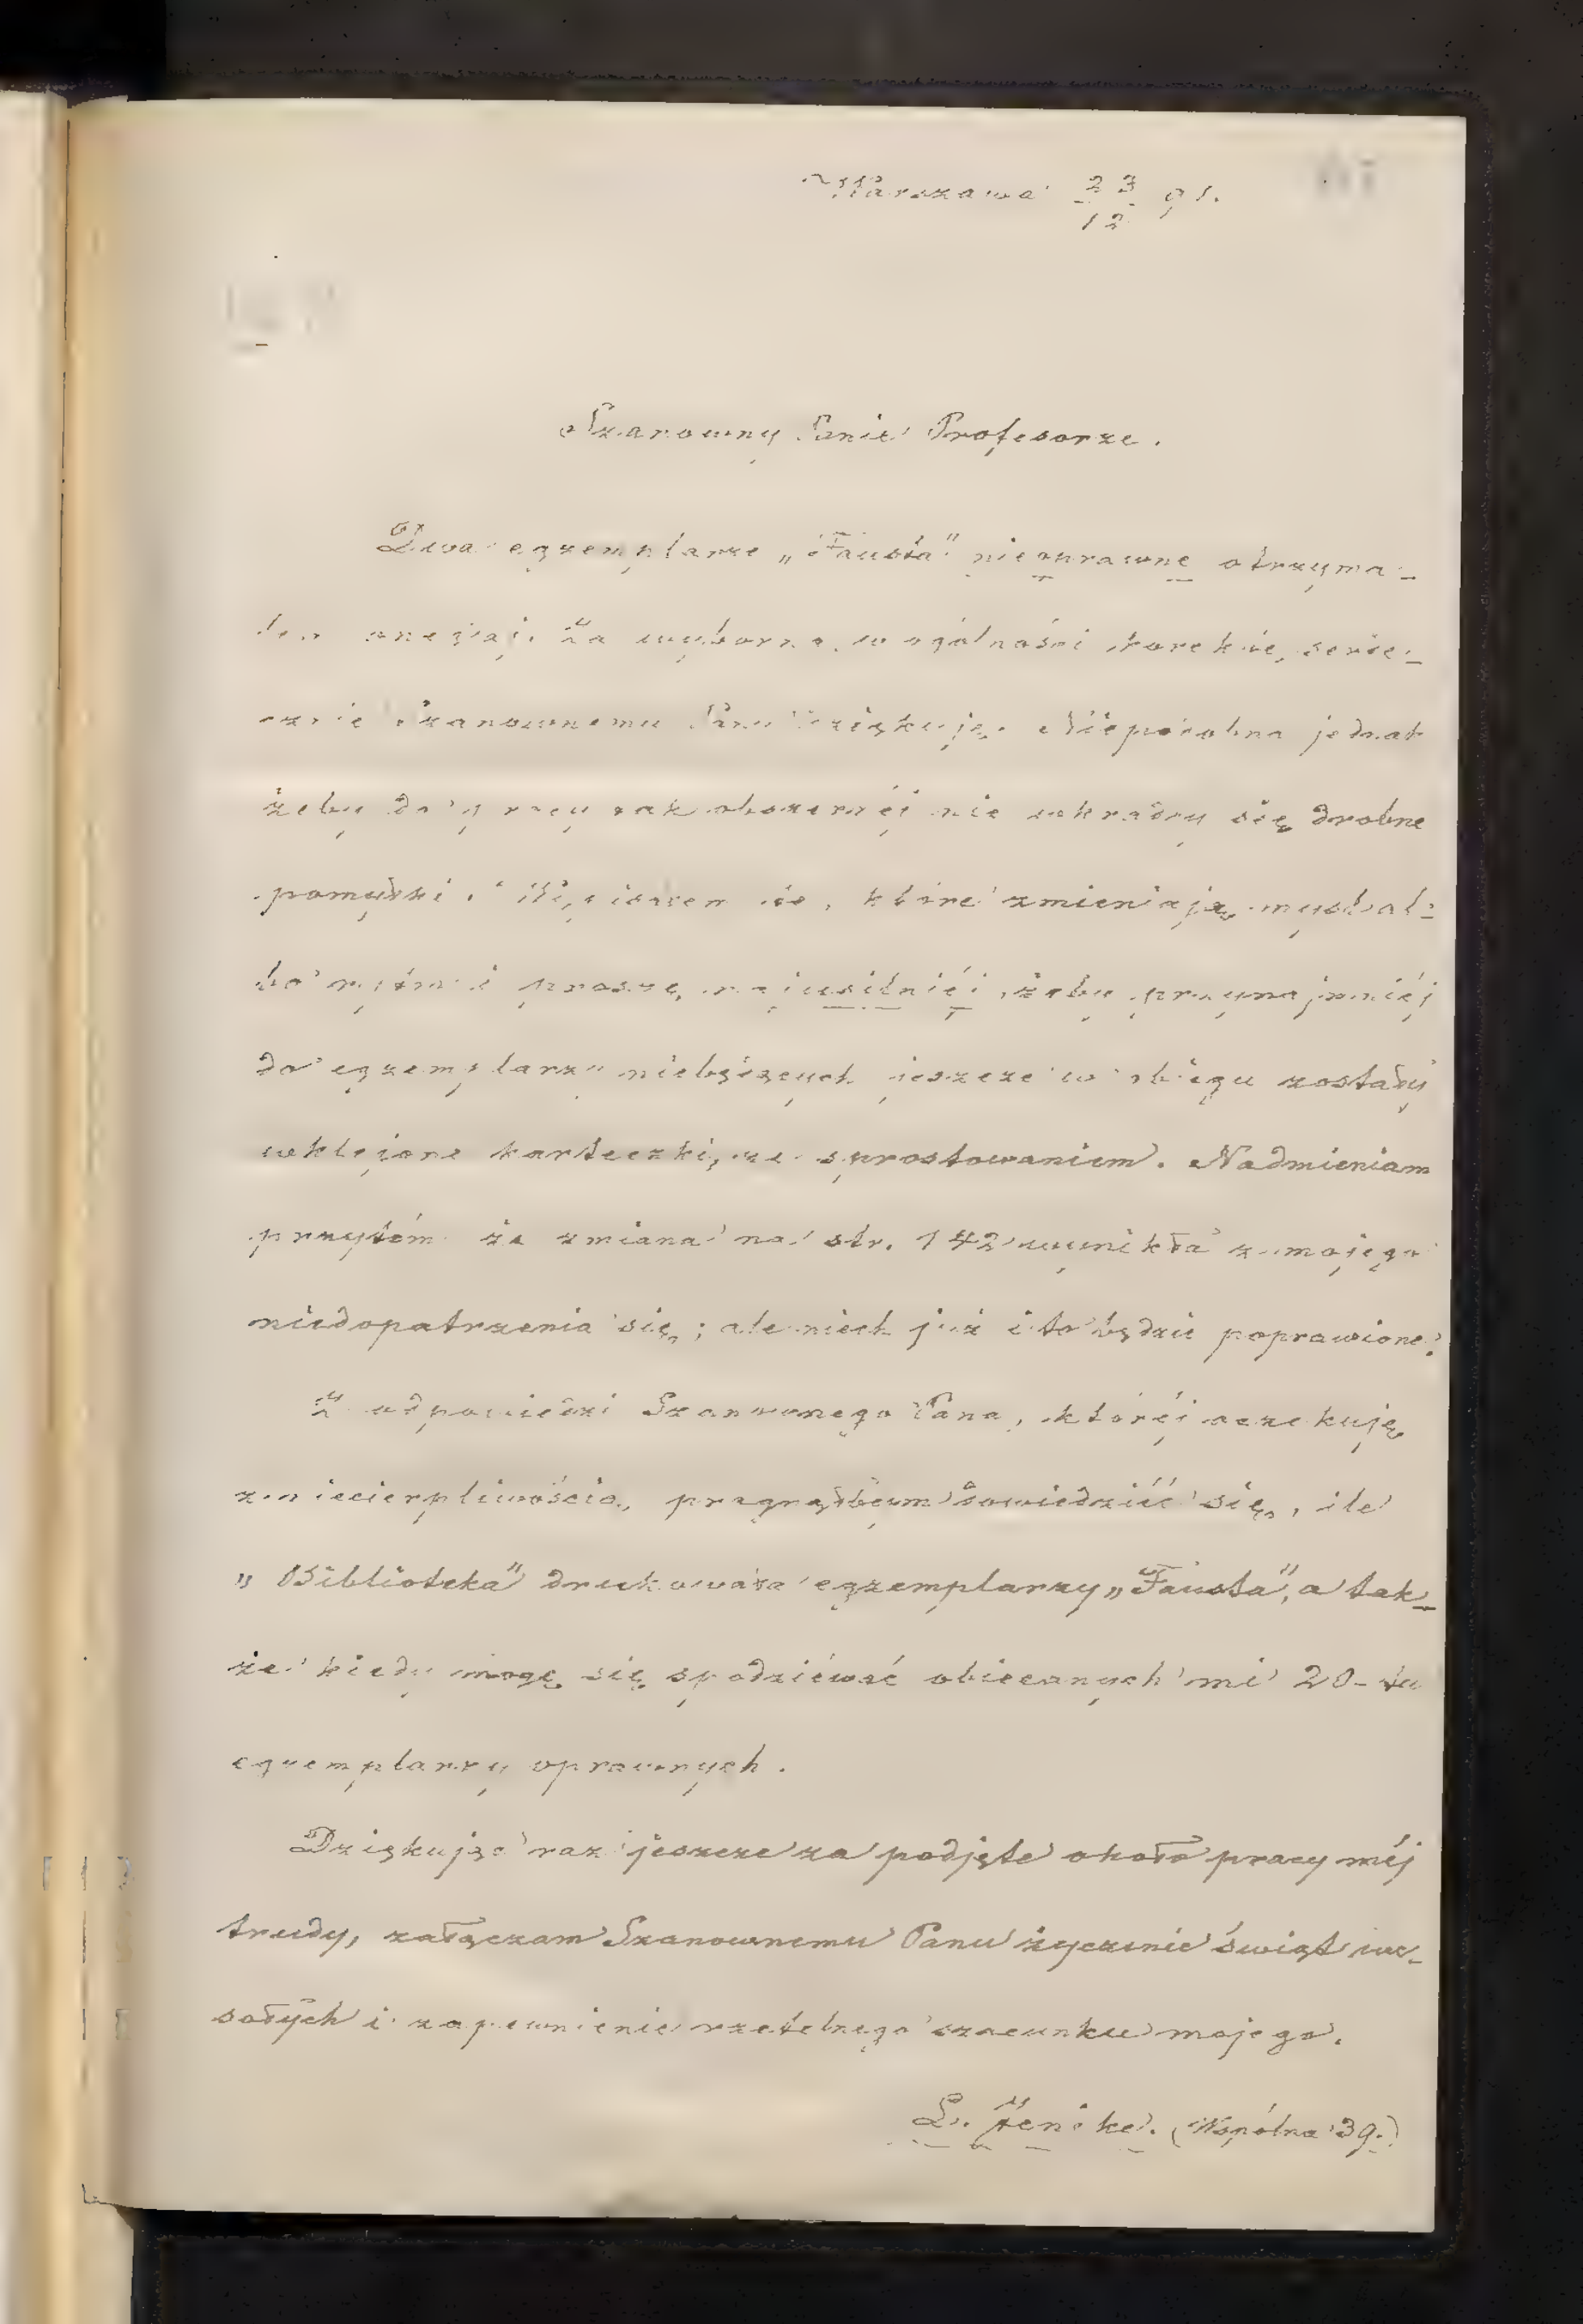 Warszawa 23/12 91.
Szanowny Panie Profesorze.
Dwa egzemplarze „Fausta" nieoprawne otrzyma-
łem onegdaj. Za wyborną w ogólności korektę, serde-
cznie Szanownemu Panu dziękuję. Niepodobna jednak
żeby do pracy tak obszernéj nie wkradły się drobne
pomyłki. te, które zmieniają myśl al-
bo rytm i proszę najusilniéj, żeby przynajmniéj
do egzemplarzy niebędących jeszcze w obiegu zostały
wklejone karteczki, ze sprostowaniem. Nadmieniam
przytém że zmiana na str. 142 wynikła z mojego
niedopatrzenia się; ale niech już i to będzie poprawione.
Z odpowiedzi Szanownego Pana, któréj oczekuję
z niecierpliwością, pragnąłbym dowiedziéć się, ile
„Biblioteka" drukowała egzemplarzy „Fausta", a tak-
że kiedy mogę się spodziéwać obiecanych mi 20-tu
egzemplarzy oprawnych.
Dziękując raz jeszcze za podjęte około pracy méj
trudy, załączam Szanownemu Panu życzenie świąt we-
sołych i zapewnienie rzetelnego szacunku mojego.
L. Jenike. (Wspólna 39.)